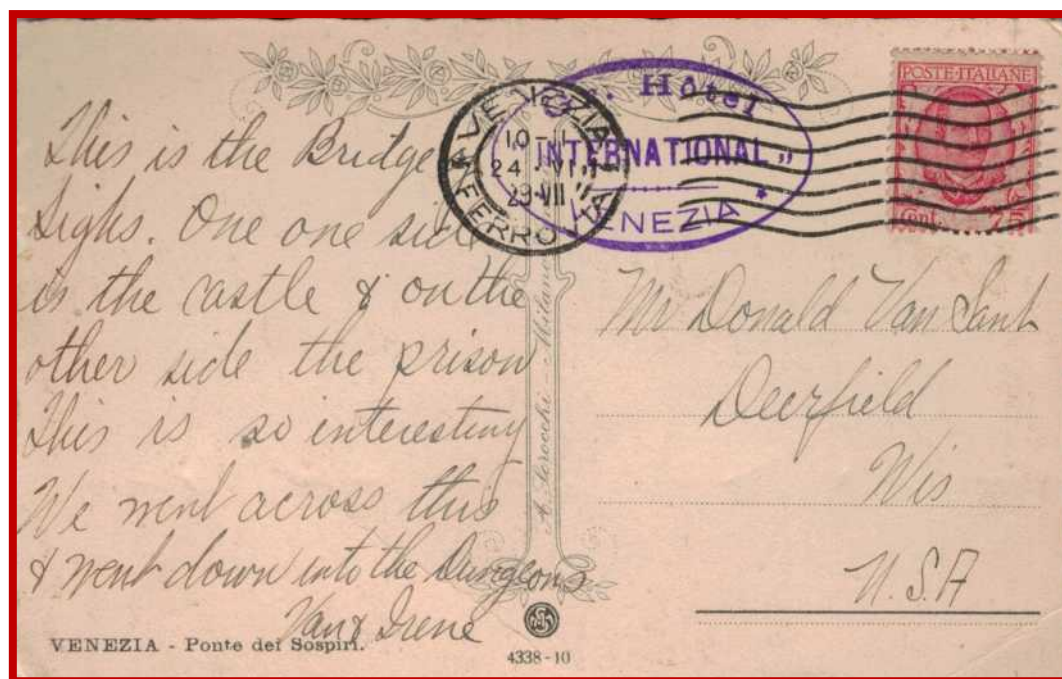 This is the Bridge
Sighs. One one side
is the castle & on the
other side the prison
This is so interesting
We went across this
& went down into the Dungeons
Van & Irene
VENEZIA - Ponte dei Sospiri.
4338-10
A. Scrocchi - Milano
VENEZIA
10-
24 VII
29-VII
FERROVIA
Hôtel
INTERNATIONAL"
VENEZIA *
POSTE·ITALIANE
Cent. 75
Mr Donald Van Sant
Deerfield
Wis
U.S.A